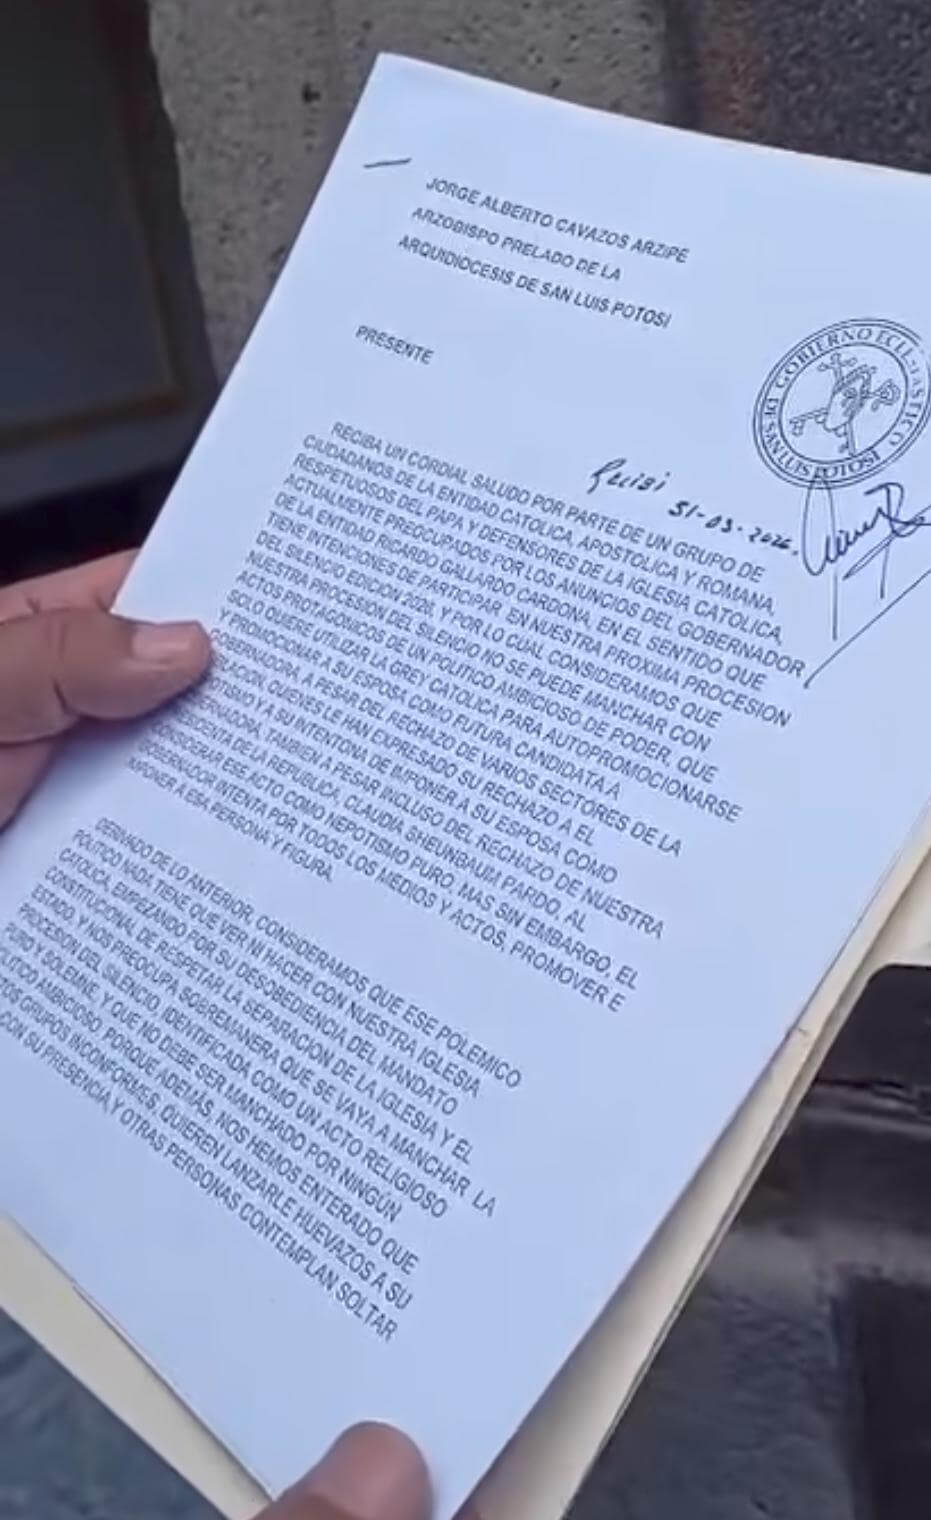 JORGE ALBERTO CAVAZOS ARZIPE
ARZOBISPO PRELADO DE LA
ARQUIDIOCESIS DE SAN LUIS POTOSI
PRESENTE
GOBIERNO ECLESIASTICO
DE SAN LUIS POTOSI
Recibi 31-03-2026.
RECIBA UN CORDIAL SALUDO POR PARTE DE UN GRUPO DE
CIUDADANOS DE LA ENTIDAD CATOLICA, APOSTOLICA Y ROMANA,
RESPETUOSOS DEL PAPA Y DEFENSORES DE LA IGLESIA CATOLICA,
ACTUALMENTE PREOCUPADOS POR LOS ANUNCIOS DEL GOBERNADOR
DE LA ENTIDAD RICARDO GALLARDO CARDONA, EN EL SENTIDO QUE
TIENE INTENCIONES DE PARTICIPAR EN NUESTRA PROXIMA PROCESION
DEL SILENCIO EDICION 2026, Y POR LO CUAL CONSIDERAMOS QUE
NUESTRA PROCESION DEL SILENCIO NO SE PUEDE MANCHAR CON
ACTOS PROTAGONICOS DE UN POLITICO AMBICIOSO DE PODER, QUE
SOLO QUIERE UTILIZAR LA GREY CATOLICA PARA AUTOPROMOCIONARSE
Y PROMOCIONAR A SU ESPOSA COMO FUTURA CANDIDATA A
GOBERNADORA A PESAR DEL RECHAZO DE VARIOS SECTORES DE LA
QUIENES LE HAN EXPRESADO SU RECHAZO A EL
Y A SU INTENTONA DE IMPONER A SU ESPOSA COMO
TAMBIEN A PESAR INCLUSO DEL RECHAZO DE NUESTRA
DE LA REPUBLICA, CLAUDIA SHEUNBAUM PARDO, AL
CONSIDERAR ESE ACTO COMO NEPOTISMO PURO, MAS SIN EMBARGO, EL
GOBERNADOR INTENTA POR TODOS LOS MEDIOS Y ACTOS, PROMOVER E
IMPONER A ESA PERSONA Y FIGURA.
DERIVADO DE LO ANTERIOR, CONSIDERAMOS QUE ESE POLEMICO
POLITICO NADA TIENE QUE VER NI HACER CON NUESTRA IGLESIA
CATOLICA, EMPEZANDO POR SU DESOBEDIENCIA DEL MANDATO
CONSTITUCIONAL DE RESPETAR LA SEPARACION DE LA IGLESIA Y EL
ESTADO, Y NOS PREOCUPA SOBREMANERA QUE SE VAYA A MANCHAR LA
PROCESION DEL SILENCIO, IDENTIFICADA COMO UN ACTO RELIGIOSO
Y SOLEMNE, Y QUE NO DEBE SER MANCHADO POR NINGÚN
AMBICIOSO, PORQUE ADEMÁS, NOS HEMOS ENTERADO QUE
GRUPOS INCONFORMES, QUIEREN LANZARLE HUEVAZOS A SU
CON SU PRESENCIA, Y OTRAS PERSONAS CONTEMPLAN SOLTAR